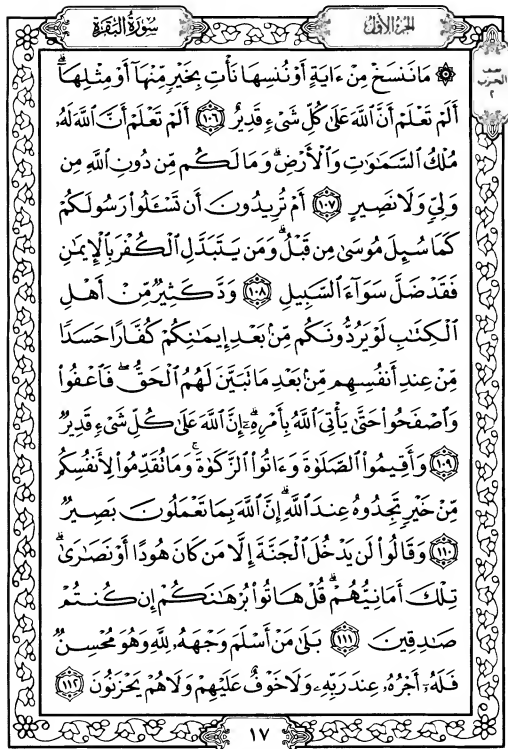 سُورَةُ البَقَرَةِ
الجُزْءُ الأَوَّل
نصف
الحزب
٢
۞ مَا نَنسَخْ مِنْ ءَايَةٍ أَوْ نُنسِهَا نَأْتِ بِخَيْرٍ مِّنْهَآ أَوْ مِثْلِهَآۗ
أَلَمْ تَعْلَمْ أَنَّ ٱللَّهَ عَلَىٰ كُلِّ شَىْءٍ قَدِيرٌ ١٠٦ أَلَمْ تَعْلَمْ أَنَّ ٱللَّهَ لَهُۥ
مُلْكُ ٱلسَّمَٰوَٰتِ وَٱلْأَرْضِۗ وَمَا لَكُم مِّن دُونِ ٱللَّهِ مِن
وَلِىٍّ وَلَا نَصِيرٍ ١٠٧ أَمْ تُرِيدُونَ أَن تَسْـَٔلُوا۟ رَسُولَكُمْ
كَمَا سُئِلَ مُوسَىٰ مِن قَبْلُۗ وَمَن يَتَبَدَّلِ ٱلْكُفْرَ بِٱلْإِيمَٰنِ
فَقَدْ ضَلَّ سَوَآءَ ٱلسَّبِيلِ ١٠٨ وَدَّ كَثِيرٌ مِّنْ أَهْلِ
ٱلْكِتَٰبِ لَوْ يَرُدُّونَكُم مِّنۢ بَعْدِ إِيمَٰنِكُمْ كُفَّارًا حَسَدًا
مِّنْ عِندِ أَنفُسِهِم مِّنۢ بَعْدِ مَا تَبَيَّنَ لَهُمُ ٱلْحَقُّۖ فَٱعْفُوا۟
وَٱصْفَحُوا۟ حَتَّىٰ يَأْتِىَ ٱللَّهُ بِأَمْرِهِۦٓۗ إِنَّ ٱللَّهَ عَلَىٰ كُلِّ شَىْءٍ قَدِيرٌ
١٠٩ وَأَقِيمُوا۟ ٱلصَّلَوٰةَ وَءَاتُوا۟ ٱلزَّكَوٰةَۚ وَمَا تُقَدِّمُوا۟ لِأَنفُسِكُم
مِّنْ خَيْرٍ تَجِدُوهُ عِندَ ٱللَّهِۗ إِنَّ ٱللَّهَ بِمَا تَعْمَلُونَ بَصِيرٌ
١١٠ وَقَالُوا۟ لَن يَدْخُلَ ٱلْجَنَّةَ إِلَّا مَن كَانَ هُودًا أَوْ نَصَٰرَىٰۗ
تِلْكَ أَمَانِيُّهُمْۗ قُلْ هَاتُوا۟ بُرْهَٰنَكُمْ إِن كُنتُمْ
صَٰدِقِينَ ١١١ بَلَىٰ مَنْ أَسْلَمَ وَجْهَهُۥ لِلَّهِ وَهُوَ مُحْسِنٌ
فَلَهُۥٓ أَجْرُهُۥ عِندَ رَبِّهِۦ وَلَا خَوْفٌ عَلَيْهِمْ وَلَا هُمْ يَحْزَنُونَ ١١٢
١٧